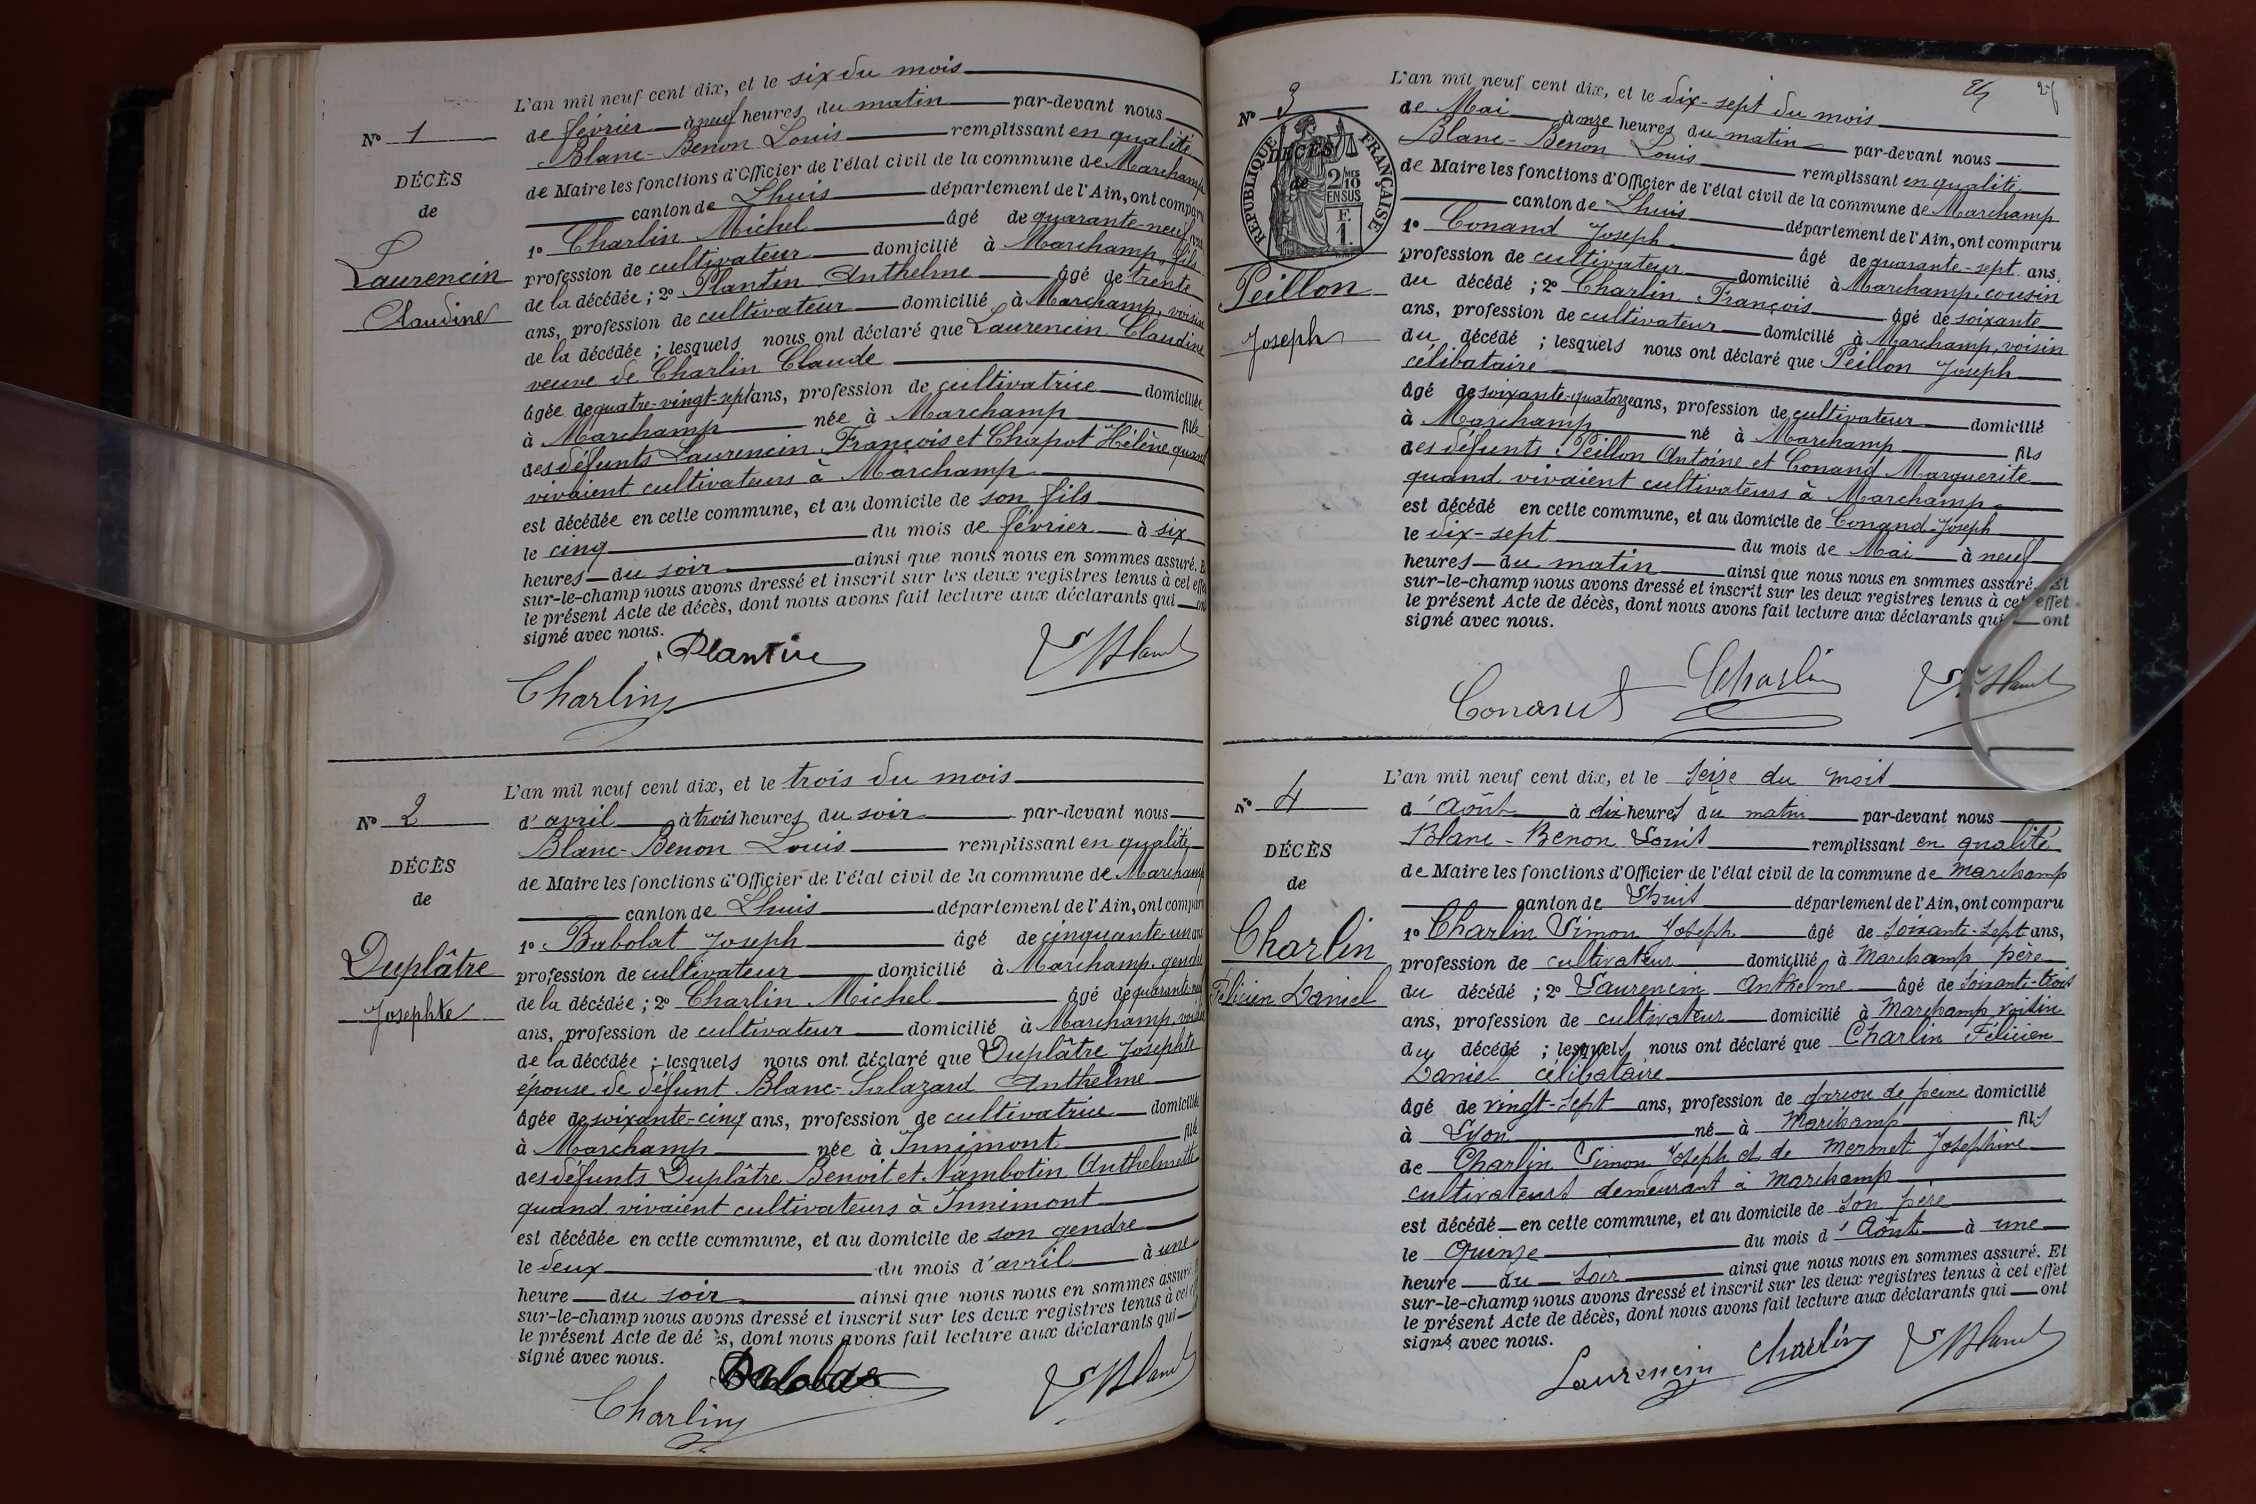 L'an mil neuf cent dix, et le six du mois
N° 1
de février à neuf heures du matin par-devant nous
Blanc-Benon Louis remplissant en qualité
DÉCÈS
de Maire les fonctions d'Officier de l'état civil de la commune de Marchamp
de
canton de Lhuis département de l'Ain, ont comparu
1° Charlin Michel âgé de quarante-neuf ans
Laurencin
profession de cultivateur domicilié à Marchamp, fils
Claudine
de la décédée ; 2° Plantin Anthelme âgé de trente
ans, profession de cultivateur domicilié à Marchamp, voisin
de la décédée ; lesquels nous ont déclaré que Laurencin Claudine
veuve de Charlin Claude
âgée de quatre-vingt-sept ans, profession de cultivatrice domiciliée
à Marchamp née à Marchamp fille
des défunts Laurencin François et Chapot Hélène, quand
vivaient cultivateurs à Marchamp
est décédée en cette commune, et au domicile de son fils
le cinq du mois de février à six
heures du soir ainsi que nous nous en sommes assuré. E
sur-le-champ nous avons dressé et inscrit sur les deux registres tenus à cet effe
le présent Acte de décès, dont nous avons fait lecture aux déclarants qui on
signé avec nous.
Plantin
Charlin
L Blanc
L'an mil neuf cent dix, et le trois du mois
N° 2
d'avril à trois heures du soir par-devant nous
Blanc-Benon Louis remplissant en qualité
DÉCÈS
de Maire les fonctions d'Officier de l'état civil de la commune de Marchamp
de
canton de Lhuis département de l'Ain, ont comparu
1° Babolat Joseph âgé de cinquante-un ans
Duplâtre
profession de cultivateur domicilié à Marchamp, gendre
Josephte
de la décédée ; 2° Charlin Michel âgé de quarante-neuf
ans, profession de cultivateur domicilié à Marchamp, voisin
de la décédée ; lesquels nous ont déclaré que Duplâtre Josephte
épouse de défunt Blanc-Salazard Anthelme
âgée de soixante-cinq ans, profession de cultivatrice domiciliée
à Marchamp née à Innimont fille
des défunts Duplâtre Benoit et Nambotin Anthelmette
quand vivaient cultivateurs à Innimont
est décédée en cette commune, et au domicile de son gendre
le deux du mois d'avril à une
heure du soir ainsi que nous nous en sommes assuré.
sur-le-champ nous avons dressé et inscrit sur les deux registres tenus à cet eff
le présent Acte de décès, dont nous avons fait lecture aux déclarants qui
signé avec nous.
Babolat
Charlin
L Blanc
L'an mil neuf cent dix, et le dix-sept du mois
N° 3
de Mai à onze heures du matin par-devant nous
RÉPUBLIQUE FRANÇAISE
2/10 MES EN SUS
F. 1.
Blanc-Benon Louis remplissant en qualité
DÉCÈS
de Maire les fonctions d'Officier de l'état civil de la commune de Marchamp
de
canton de Lhuis département de l'Ain, ont comparu
1° Conand Joseph âgé de quarante-sept ans,
Peillon
profession de cultivateur domicilié à Marchamp, cousin
Joseph
du décédé ; 2° Charlin François âgé de soixante
ans, profession de cultivateur domicilié à Marchamp, voisin
du décédé ; lesquels nous ont déclaré que Peillon Joseph
célibataire
âgé de soixante-quatorze ans, profession de cultivateur domicilié
à Marchamp né à Marchamp fils
des défunts Peillon Antoine et Conand Marguerite
quand vivaient cultivateurs à Marchamp
est décédé en cette commune, et au domicile de Conand Joseph
le dix-sept du mois de Mai à neuf
heures du matin ainsi que nous nous en sommes assuré. Et
sur-le-champ nous avons dressé et inscrit sur les deux registres tenus à cet effet
le présent Acte de décès, dont nous avons fait lecture aux déclarants qui ont
signé avec nous.
Conand
Charlin
L Blanc
L'an mil neuf cent dix, et le seize du mois
N° 4
d'Août à dix heures du matin par-devant nous
Blanc-Benon Louis remplissant en qualité
DÉCÈS
de Maire les fonctions d'Officier de l'état civil de la commune de Marchamp
de
canton de Lhuis département de l'Ain, ont comparu
1° Charlin Simon Joseph âgé de soixante-sept ans,
Charlin
profession de cultivateur domicilié à Marchamp père
Félicien Daniel
du décédé ; 2° Laurencin Anthelme âgé de soixante-trois
ans, profession de cultivateur domicilié à Marchamp, voisin
du décédé ; lesquels nous ont déclaré que Charlin Félicien
Daniel célibataire
âgé de vingt-sept ans, profession de garçon de peine domicilié
à Lyon né à Marchamp fils
de Charlin Simon Joseph et de Mermet Josephine
cultivateurs demeurant à Marchamp
est décédé en cette commune, et au domicile de son père
le Quinze du mois d'Août à une
heure du soir ainsi que nous nous en sommes assuré. Et
sur-le-champ nous avons dressé et inscrit sur les deux registres tenus à cet effet
le présent Acte de décès, dont nous avons fait lecture aux déclarants qui ont
signé avec nous.
Laurencin
Charlin
L Blanc